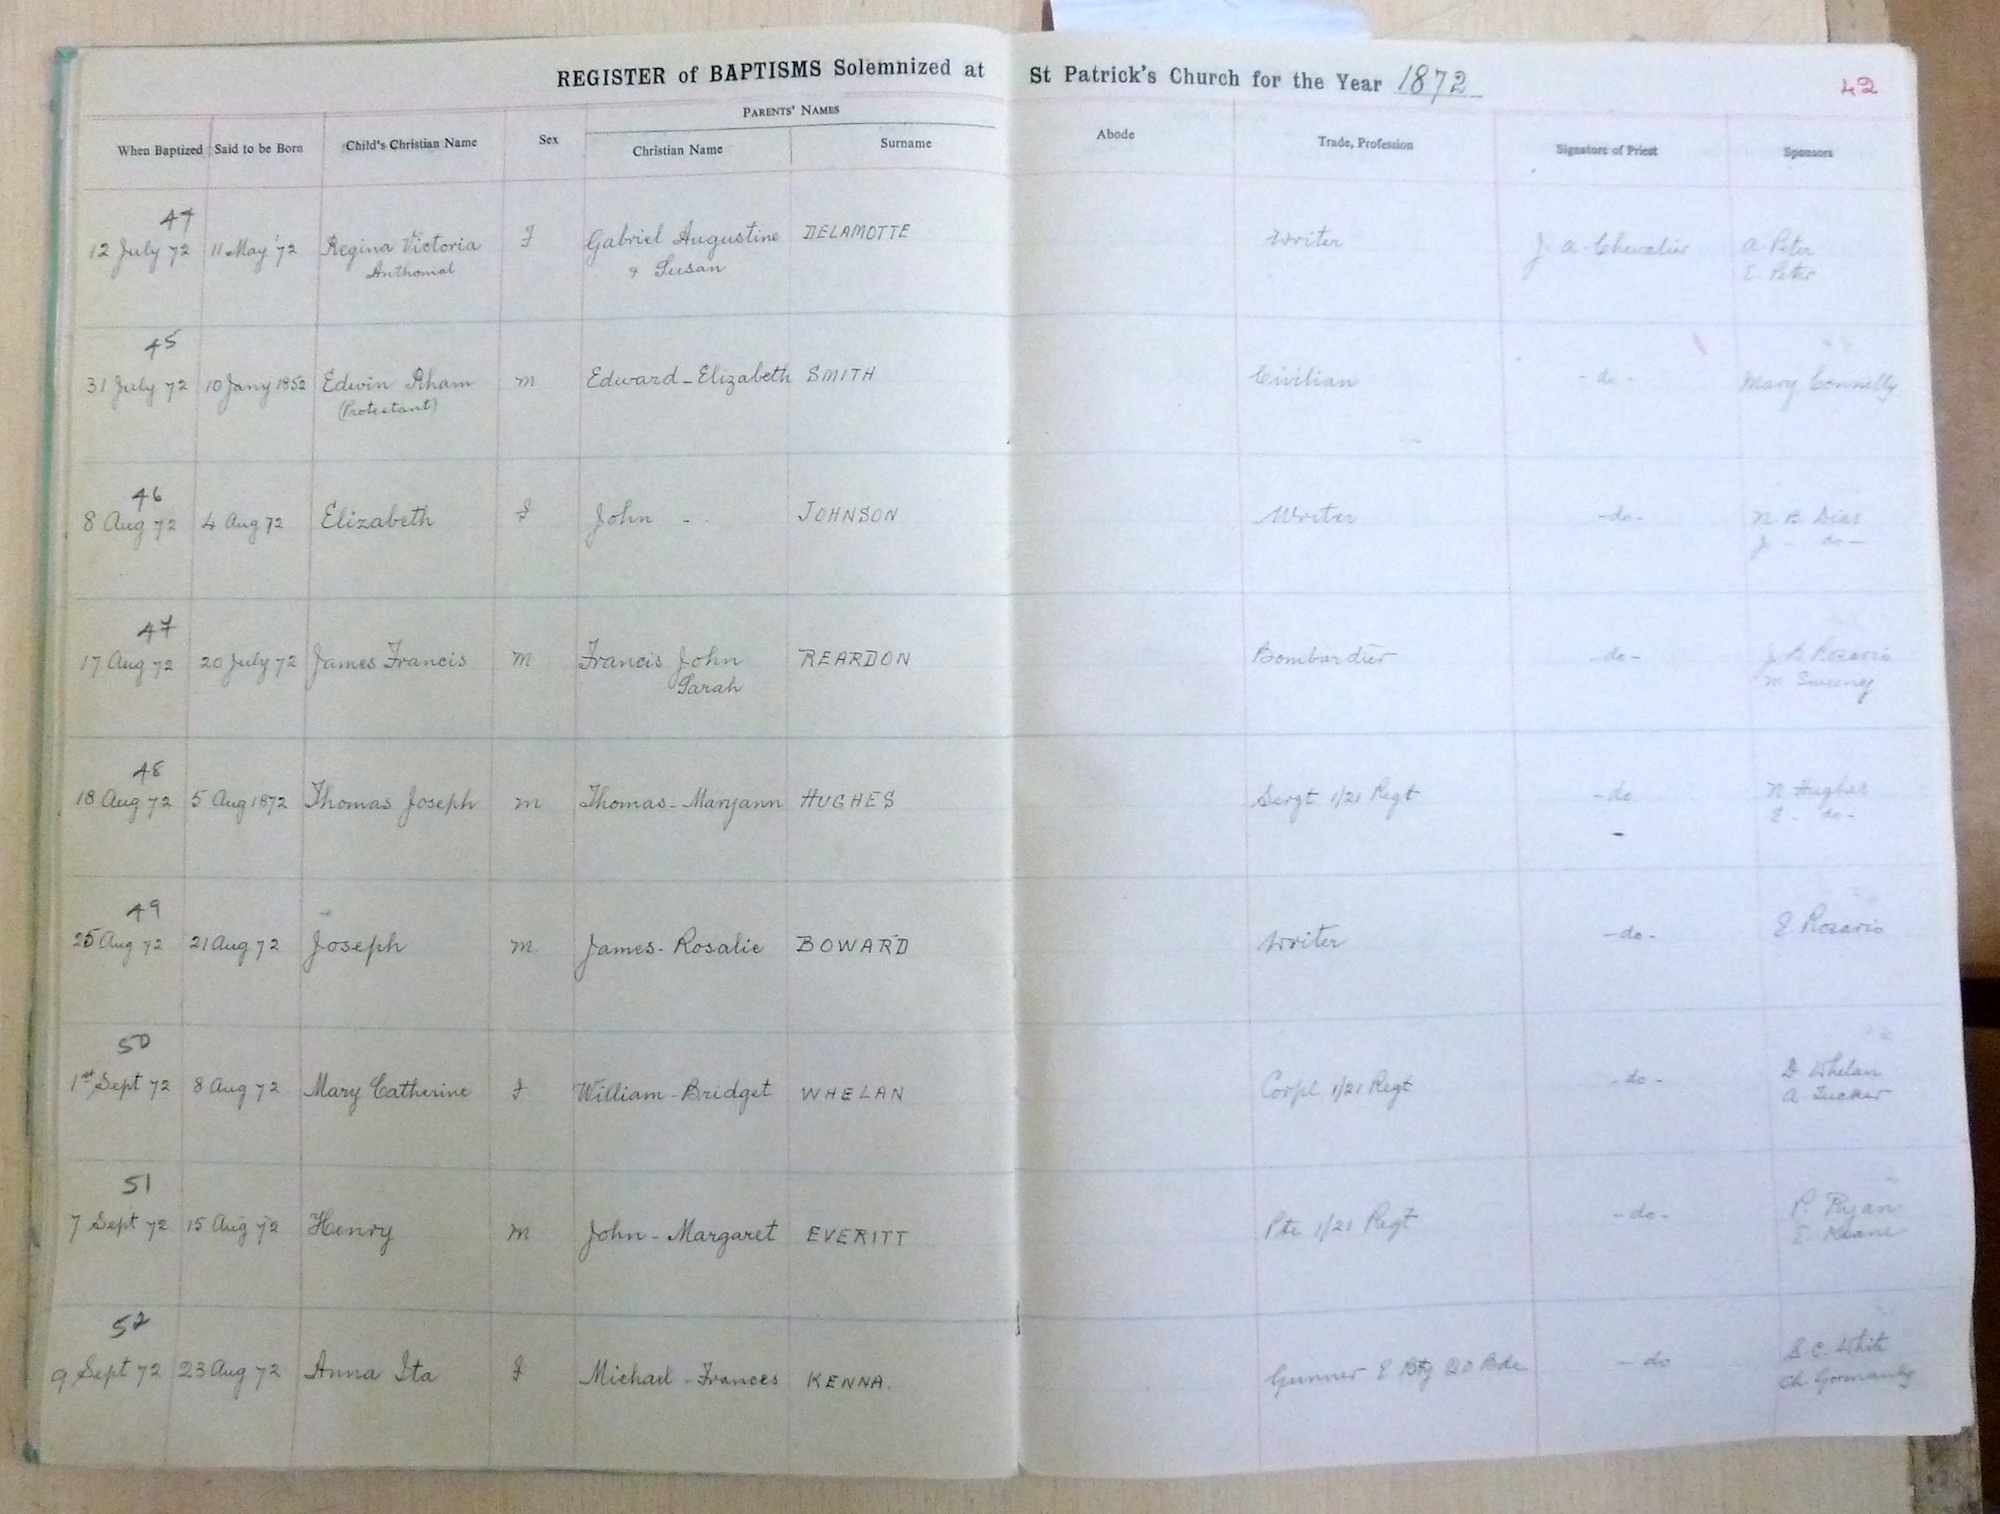 REGISTER of BAPTISMS Solemnized at St Patrick's Church for the Year 1872
42
PARENTS' NAMES
When Baptized Said to be Born Child's Christian Name Sex Christian Name Surname Abode Trade, Profession Signature of Priest Sponsors
44
12 July 72 11 May '72 Regina Victoria F Gabriel Augustine DELAMOTTE Writer J A Chevalier A. Peter
& Susan E. Peter
45
31 July 72 10 Jany 1852 Edwin m Edward - Elizabeth SMITH Civilian - do - Mary Connelly
(Protestant)
46
8 Aug 72 4 Aug 72 Elizabeth F John - - JOHNSON Writer - do - N B Dias
J - do -
47
17 Aug 72 20 July 72 James Francis m Francis John REARDON Bombardier - do - J. R. Rozario
Sarah m Sweeney
48
18 Aug 72 5 Aug 1872 Thomas Joseph m Thomas - Maryann HUGHES Sergt 1/21 Regt - do N Hughes
E - do -
49
25 Aug 72 21 Aug 72 Joseph m James - Rosalie BOWARD Writer - do - E. Rozario
50
1st Sept 72 8 Aug 72 Mary Catherine F William - Bridget WHELAN Corpl 1/21 Regt - do - D Whelan
A. Tucker
51
7 Sept 72 15 Aug 72 Henry m John - Margaret EVERITT Pte 1/21 Regt - do - P. Ryan
E. Keane
52
9 Sept 72 23 Aug 72 Anna Ita F Michael - Frances KENNA. Gunner E Bty 20 Bde - do S. C. White
Ch. Gormanby